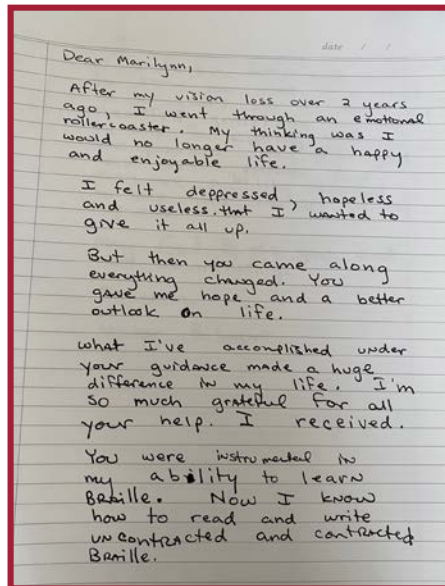 date / /
Dear Marilynn,
After my vision loss over 2 years
ago, I went through an emotional
rollercoaster. My thinking was I
would no longer have a happy
and enjoyable life.
I felt deppressed, hopeless
and useless that I wanted to
give it all up.
But then you came along
everything changed. You
gave me hope and a better
outlook on life.
what I've accomplished under
your guidance made a huge
difference in my life. I'm
so much grateful for all
your help. I received.
You were instrumental in
my ability to learn
Braille. Now I know
how to read and write
uncontracted and contracted
Braille.